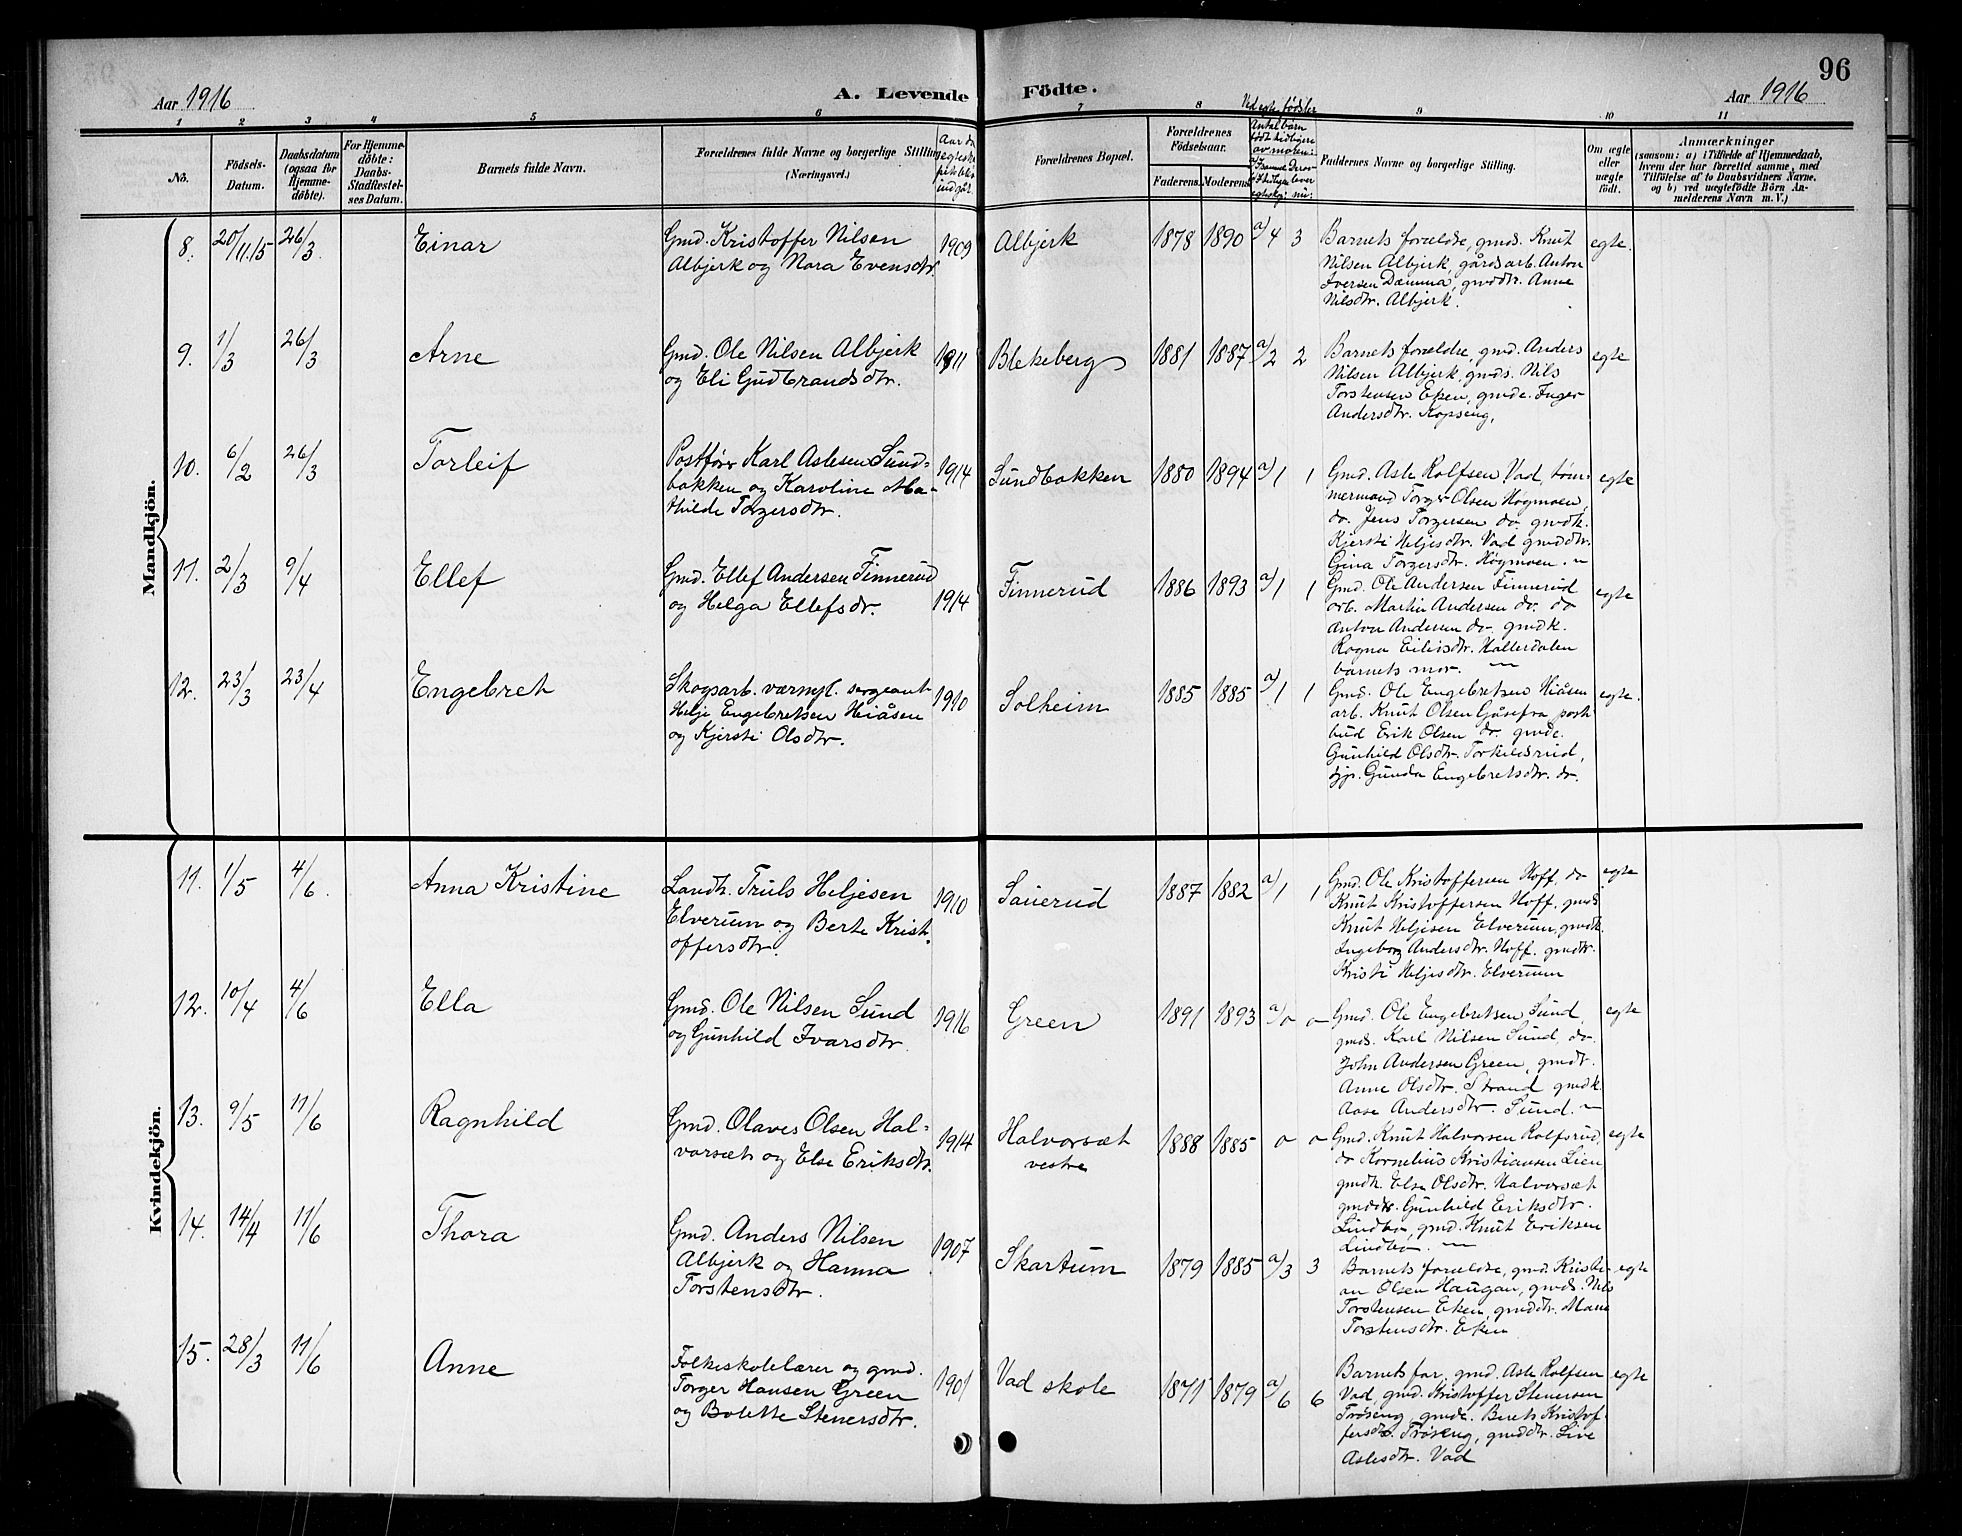 96
Aar 1916
A. Levende Födte.
Aar 1916
1 2 3 4 5 6 7 8 9 10 11
No.
Födsels-
Datum.
Daabsdatum
(ogsaa for
Hjemme-
döbte).
For Hjemme-
döbte:
Daabs-
Stadfæstel-
ses Datum.
Barnets fulde Navn.
Forældrenes fulde Navne og borgerlige Stilling
(Næringsvei.)
Forældrenes Bopæl.
Forældrenes
Födselsaar.
Faderens. Moderens.
Ved egte fødsler
Antal børn
født tidligere
av moren:
Faddernes Navne og borgerlige Stilling.
Om ægte
eller
uægte
födt.
Anmærkninger
(saasom: a) i Tilfælde af Hjemmedaab,
hvem der har forrettet samme, med
Tilföielse af to Daabsvidners Navne.
og b) ved uægtefödte Börn An-
melderens Navn m. V.)
Mandkjön.
8. 20/11.15 26/3. Einar
Gmd. Kristoffer Nilsen
Albjerk og Nora Evensdtr.
1909 Albjerk 1878 1890 a/4 3
Barnets forældre, gmds. Knut
Nilsen Albjerk, gårdsarb. Anton
Iversen Dæmma, gmddtr. Anne
Nilsdtr. Albjerk.
egte.
9. 1/3 26/3 Arne
Gmd. Ole Nilsen Albjerk
og Eli Gudbrandsdtr.
1911 Blekeberg 1881 1887 a/2 2
Barnets forældre, gmd. Anders
Nilsen Albjerk, gmds. Nils
Torstensen Eken, gmde. Inger
Andersdtr. Kopseng,
egte
10. 6/2 26/3 Torleif
Postfører Karl Aslesen Sund-
bakken og Karoline Ma-
thilde Torgersdtr.
1914 Sundbakken 1880 1894 a/1 1
Gmd. Asle Rolfsen Vad, tøm-
mermand Torger Olsen Høgmoen,
do. Jens Torgersen do. gmdk.
Kjersti Heljesdtr. Vad gmddtr.
Gina Torgersdtr. Høgmoen.
egte
11. 2/3 9/4 Ellef
Gmd. Ellef Andersen Finnerud
og Helga Ellefsdr.
1914 Finnerud 1886 1893 a/1 1
Gmd. Ole Andersen Finnerud
arb. Martin Andersen do. do
Anton Andersen do. gmdk.
Ragna Eiliisdtr. Hallerdalen
barnets mor.
egte
12. 23/3 23/4 Engebret
Skogsarb. værnpl. sergeant
Helje Engebretsen Hiåsen
og Kjersti Olsdtr.
1910 Solheim 1885 1885 a/1 1
Gmd. Ole Engebretsen Hiåsen
arb. Knut Olsen Gåsefra post-
bud Erik Olsen do. gmde.
Gunhild Olsdtr. Torkildsrud,
tjp. Gunda Engebretsdtr. do.
egte.
Kvindekjön.
11. 1/5 4/6. Anna Kristine
Landh. Truls Heljesen
Elverum og Berte Krist-
offersdtr.
1910 Sauerud 1887 1882 a/1 1
Gmd. Ole Kristoffersen Hoff, do
Knut Kristoffersen Hoff, gmds
Knut Heljesen Elverum, gmdk.
Ingeborg Andersdtr. Hoff. gmdtr.
Kristi Heljesdtr. Elverum
egte
12. 10/4 4/6 Ella
Gmd. Ole Nilsen Sund
og Gunhild Ivarsdtr.
1916 Green 1891 1893 a/0 0
Gmd. Ole Engebretsen Sund,
gmds. Karl Nilsen Sund, do.
John Andersen Green, gmdt.
Anne Olsdtr. Strand gmdk.
Aase Andersdtr. Sund.
egte
13. 9/5 11/6 Ragnhild
Gmd. Olaves Olsen Hal-
vorsæt og Else Eriksdtr.
1914 Halvorsæt
vestre
1888 1885 0 0
Gmd. Knut Halvorsen Rolfsrud,
do Kornelius Kristiansen Lien
gmdk. Else Olsdtr. Halvorsæt
gmddtr. Gunhild Eriksdtr.
Lindbø, gmd. Knut Eriksen
Lindbø.
egte
14. 14/4 11/6 Thora
Gmd. Anders Nilsen
Albjerk og Hanna
Torstensdtr.
1907 Skartum 1879 1885 a/3 3
Barnets forældre, gmd. Kristi-
an Olsen Haugan, gmds. Nils
Torstensen Eken, gmddtr. Marie
Torstensdtr. Eken
egte
15. 28/3 11/6 Anne
Folkeskolelærer og gmd.
Torger Hansen Green
og Bolette Stenersdtr.
1901 Vad skole 1871 1879 a/6 6
Barnets far, gmd. Asle Rolfsen
Vad, gmd. Kristoffer Stenersen
Trøseng, gmde. Berit Kristof-
fersdtr. Trøseng, gmddtr. Live
Aslesdtr. Vad
egte